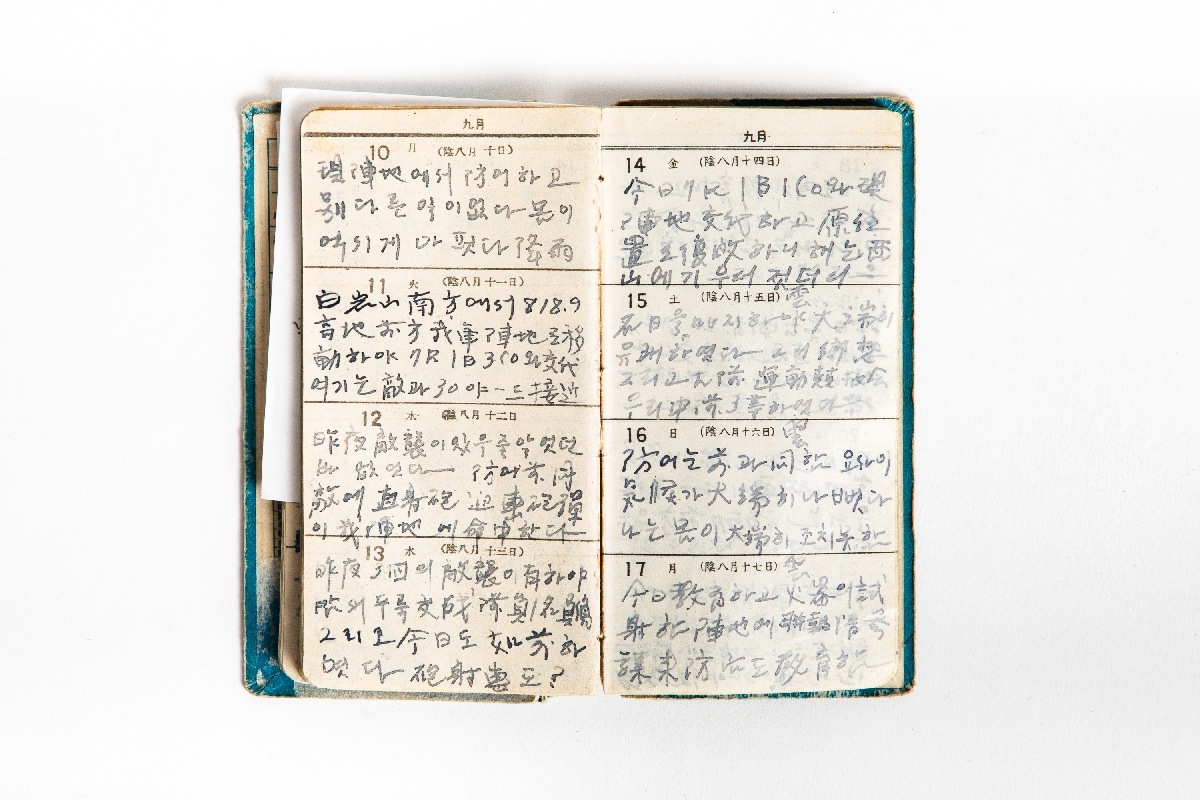 九月
10 月 (陰八月 十日)
現陣地에서 防어하고
다른 일이 없다 몸이
게 아 다 降雨
11 火 (陰八月 十一日)
白岩山 南方에서 818.9
高地 前方 我軍 陣地로 移
動하야 7R 1B 3CO와 交代
여기는 敵과 30야ー드 接近
12 水 陰八月 十二日
昨夜 敵襲이 있 줄 알었던
바 없었다 防어 前
敵에 直射砲 迫車砲彈
이 我陣地에 命中하다
13 水 (陰八月 十三日)
昨夜 3回의 敵襲이 有하야
交戰 隊員 1名 負傷
그리고 今日도 如前하
였다 砲射 도?
九月
14 金 (陰八月十四日)
今日 7R 1B 1CO와 現
陣地 交代하고 原位
置로 復歸하니 해는 西
山에 기우러
15 土 (陰八月十五日) 雲
名日을 마지하야 大端히
유쾌하였다 鄕愁
그리고 大隊 運動競技会
우리 中隊 3等하였다
16 日 (陰八月十六日) 雲
防어는 前과 同한 요사이
氣候가 大端히 나뻤다
나는 몸이 大端히 조치못한
17 月 (陰八月十七日) 雲
今日 敎育하고 火器이 試
射한 陣地에 信号
謀 防 도 敎育한